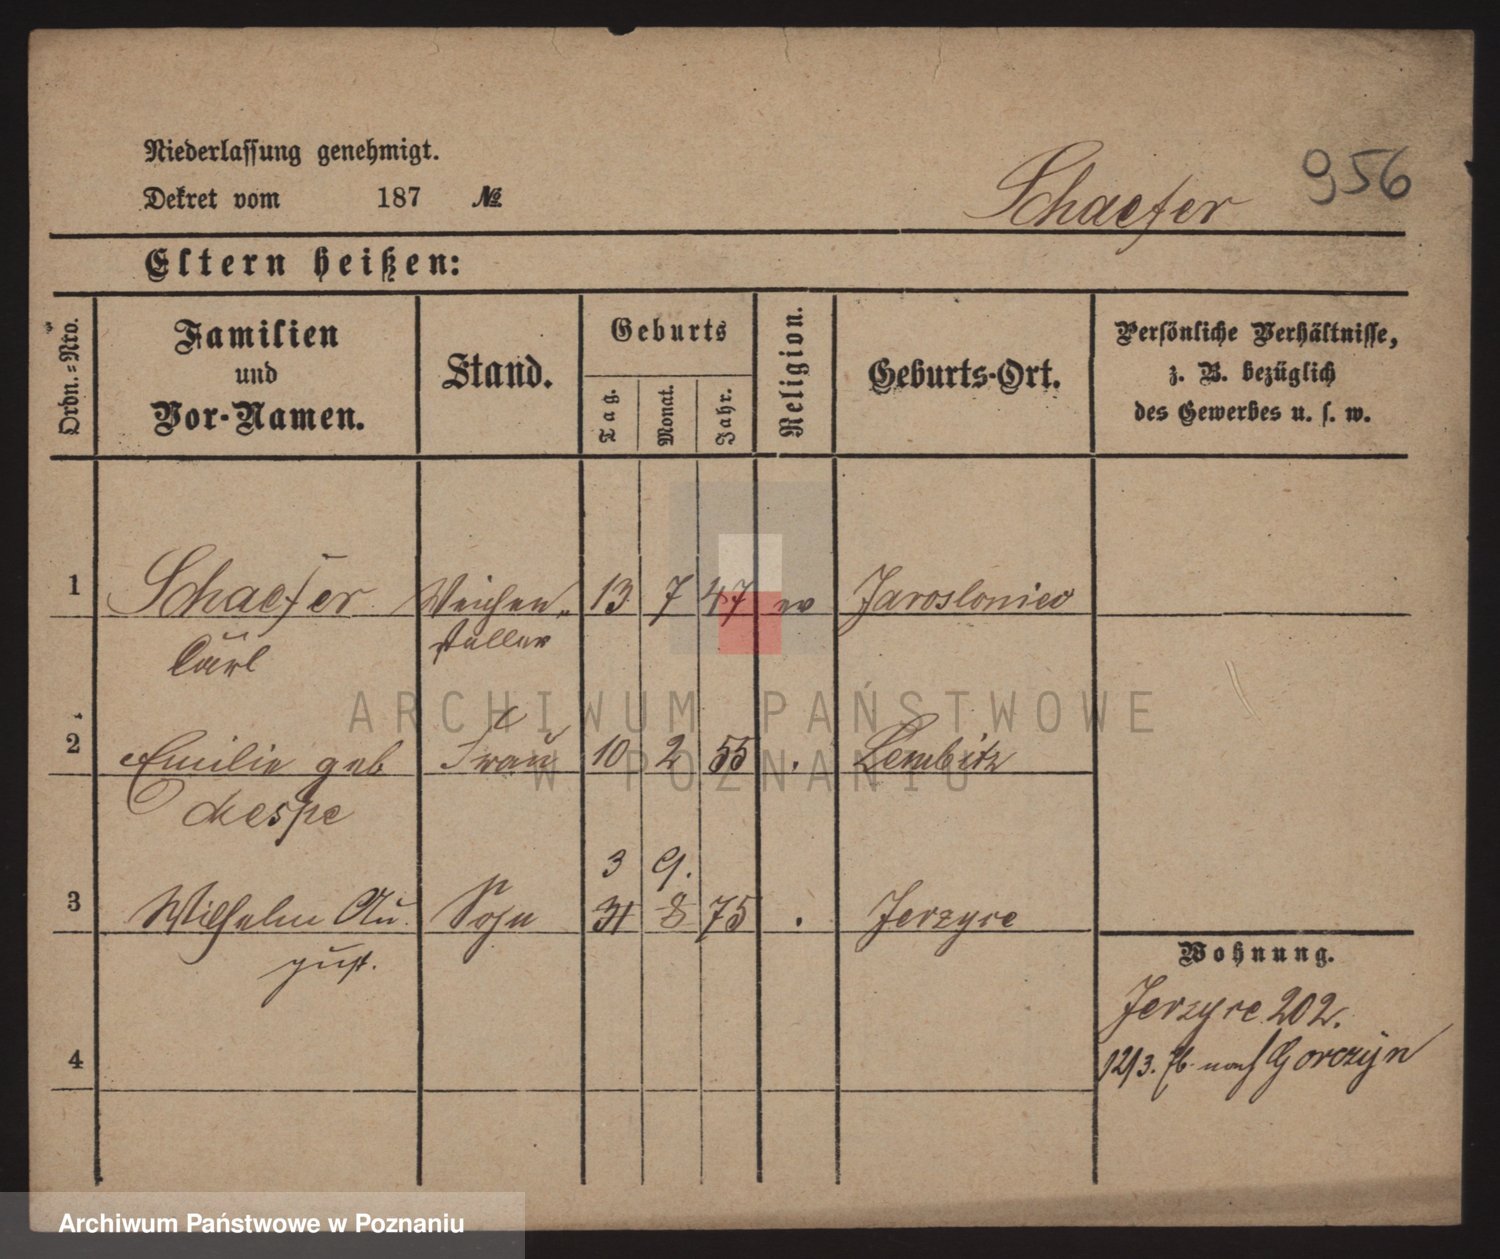 956
Niederlassung genehmigt.
Dekret vom 187 №
Schaefer
Eltern heißen:
Ordn.-Nro.
Familien und Vor-Namen.
Stand.
Geburts
Tag.
Monat.
Jahr.
Religion.
Geburts-Ort.
Persönliche Verhältnisse,
z. B. bezüglich
des Gewerbes u. s. w.
1 Schaefer Weichen- 13 7 47 ev Jaroslowiec
Carl steller
2 Emilie geb Frau 10 2 55 . Lembitz
3 9.
3 Wilhelm Au Sohn 31 8 75 . Jerzyce
gust.
4
Wohnung.
Jerzyce 202.
12/3. 76 nach Gorczyn
ARCHIWUM PAŃSTWOWE
W POZNANIU
Archiwum Państwowe w Poznaniu